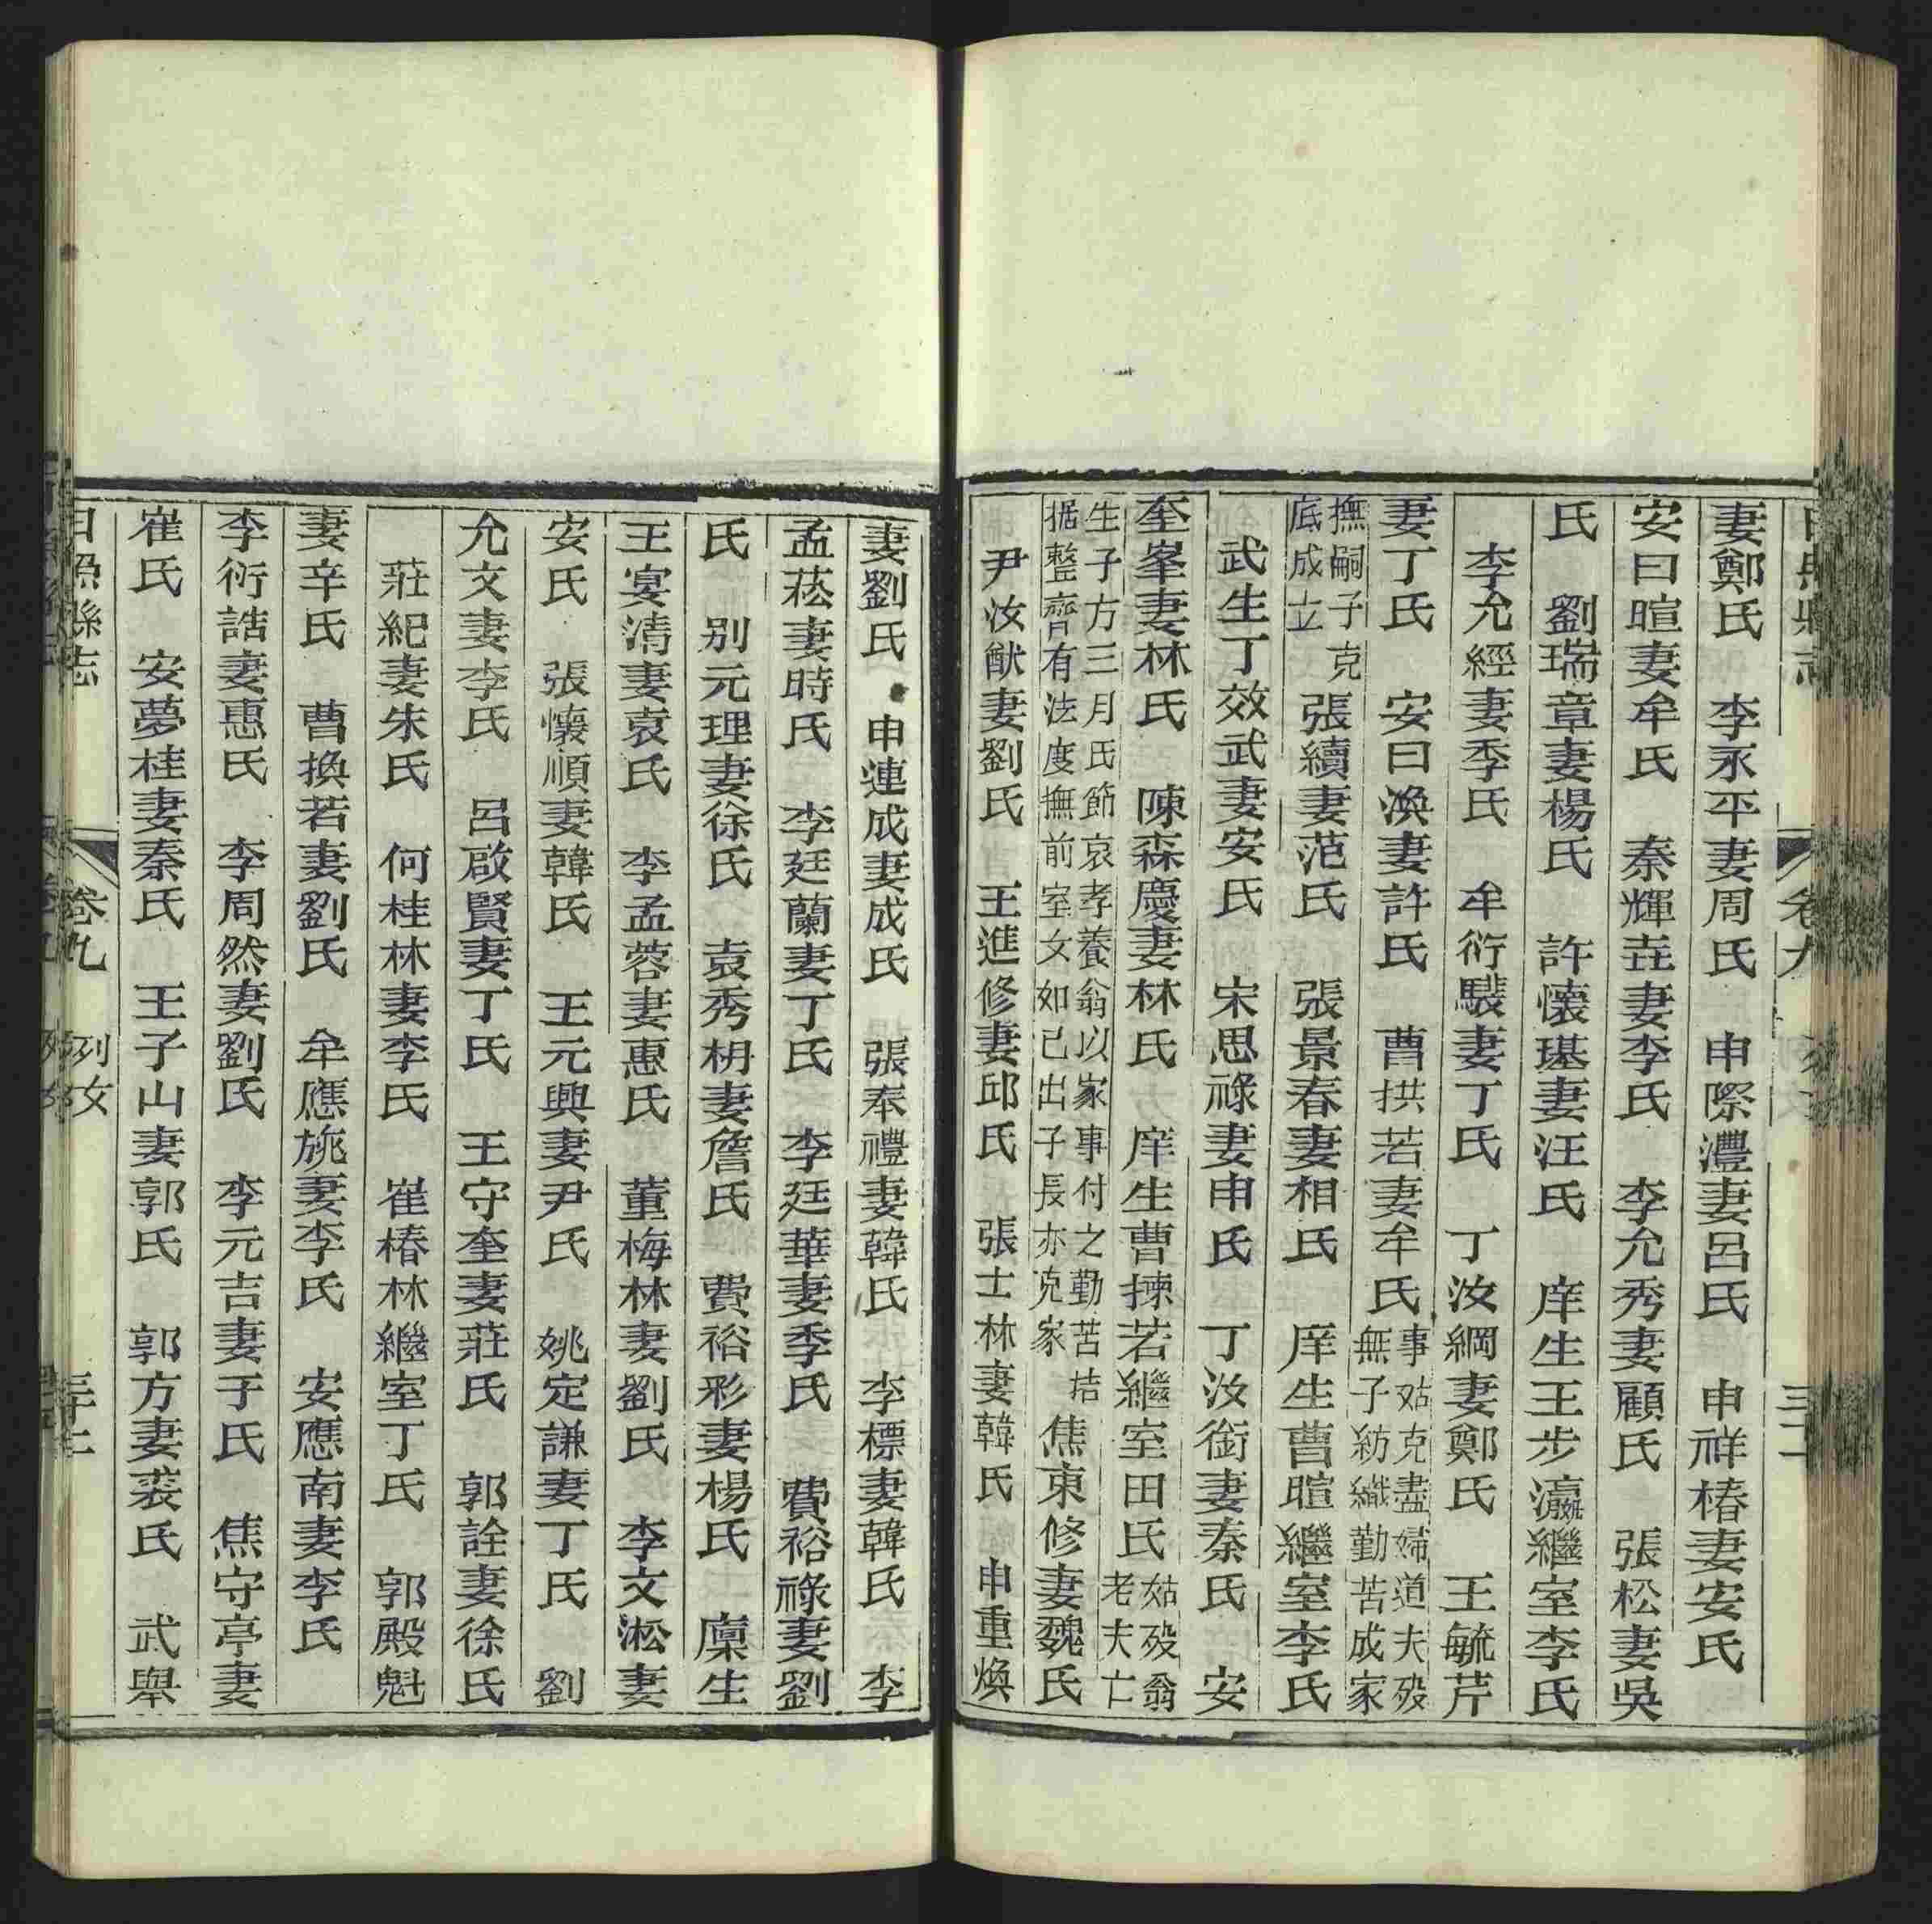 妻鄭氏　李永平妻周氏　申際灃妻呂氏　申祥椿妻安氏
安曰暄妻牟氏　秦輝垚妻李氏　李允秀妻顧氏　張松妻吳
氏　劉瑞章妻楊氏　許懷璂妻汪氏　庠生王步瀛繼室李氏
李允經妻季氏　牟衍騣妻丁氏　丁汝綱妻鄭氏　王毓芹
妻丁氏　安曰渙妻許氏　曹拱若妻牟氏 事姑克盡婦道夫歿無子紡織勤苦成家
撫嗣子克底成立　張續妻范氏　張景春妻相氏　庠生曹暄繼室李氏
武生丁效武妻安氏　宋思祿妻申氏　丁汝銜妻秦氏　安
奎峯妻林氏　陳森慶妻林氏　庠生曹揀若繼室田氏 姑歿翁老夫亡
生子方三月氏節哀孝養翁以家事付之勤苦拮据整齊有法度撫前室女如己出子長亦克家　焦東修妻魏氏
尹汝猷妻劉氏　王進修妻邱氏　張士林妻韓氏　申重煥
妻劉氏　申連成妻成氏　張奉禮妻韓氏　李標妻韓氏　李
孟菘妻時氏　李廷蘭妻丁氏　李廷華妻季氏　費裕祿妻劉
氏　別元理妻徐氏　袁秀枬妻詹氏　費裕彩妻楊氏　廩生
王宴清妻袁氏　李孟蓉妻惠氏　董梅林妻劉氏　李文淞妻
安氏　張懷順妻韓氏　王元興妻尹氏　姚定謙妻丁氏　劉
允文妻李氏　呂啟賢妻丁氏　王守奎妻莊氏　郭詮妻徐氏
莊紀妻朱氏　何桂林妻李氏　崔椿林繼室丁氏　郭殿魁
妻辛氏　曹換若妻劉氏　牟應旐妻李氏　安應南妻李氏
李衍誥妻惠氏　李周然妻劉氏　李元吉妻于氏　焦守亭妻
崔氏　安夢桂妻秦氏　王子山妻郭氏　郭方妻裘氏　武舉
日照縣志　卷九　列女　三十二